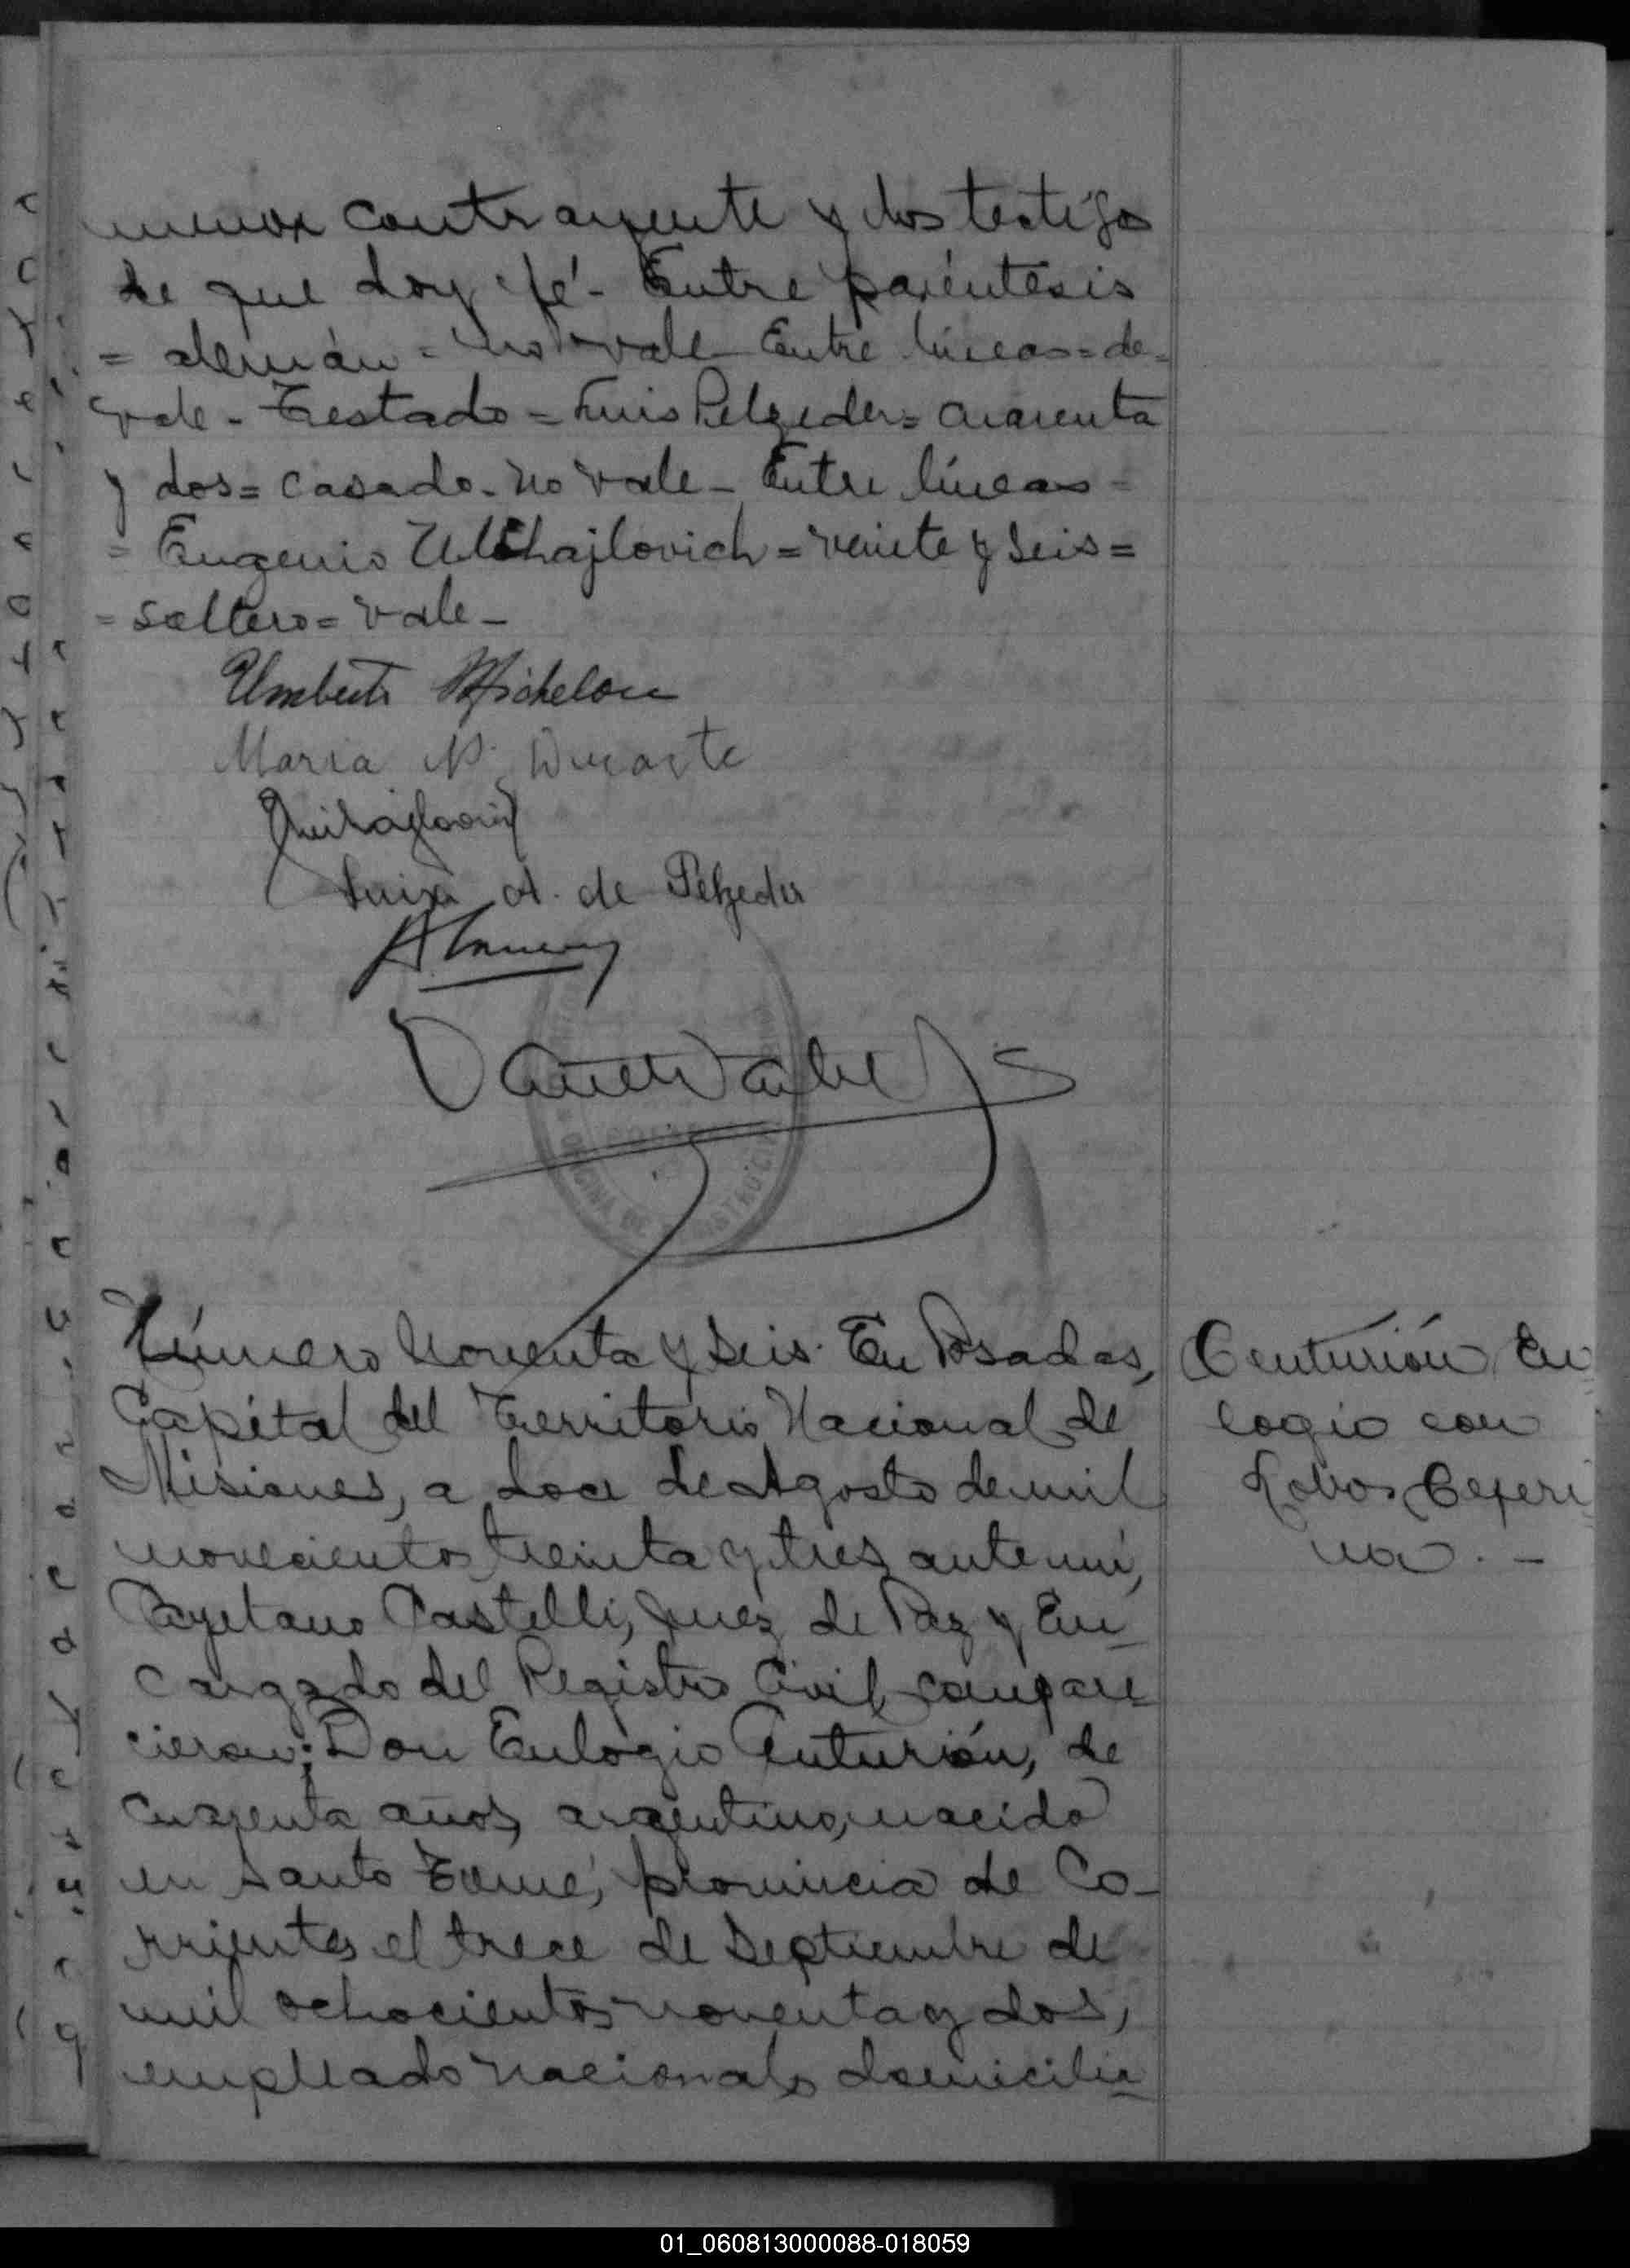 menor contrayente y dos testigos
de que doy fé - Entre paréntesis
= alemán = no vale - Entre líneas = de =
vale - Testado = Luis Pelzeder = cuarenta
y dos = casado - no vale - Entre líneas =
= Eugenio Mihajlovich = veinte y seis =
= soltero = vale -
Umberto Michelon
Maria N. Duarte
Mihajlovich
Luisa A. de Pelzeder
OFICINA DE REGISTRO CIVIL
Número noventa y seis. En Posadas,
Capital del Territorio Nacional de
Misiones, a doce de Agosto de mil
novecientos treinta y tres, ante mí,
Cayetano Castelli, Juez de Paz y En-
cargado del Registro Civil, compare-
cieron: Don Eulogio Centurión, de
cuarenta años, argentino, nacido
en Santo Tomé, provincia de Co-
rrientes el trece de Septiembre de
mil ochocientos noventa y dos,
empleado nacional, domicilia-
Centurión Eu
logio con
Lobos Ceferi
na. -
01_060813000088-018059